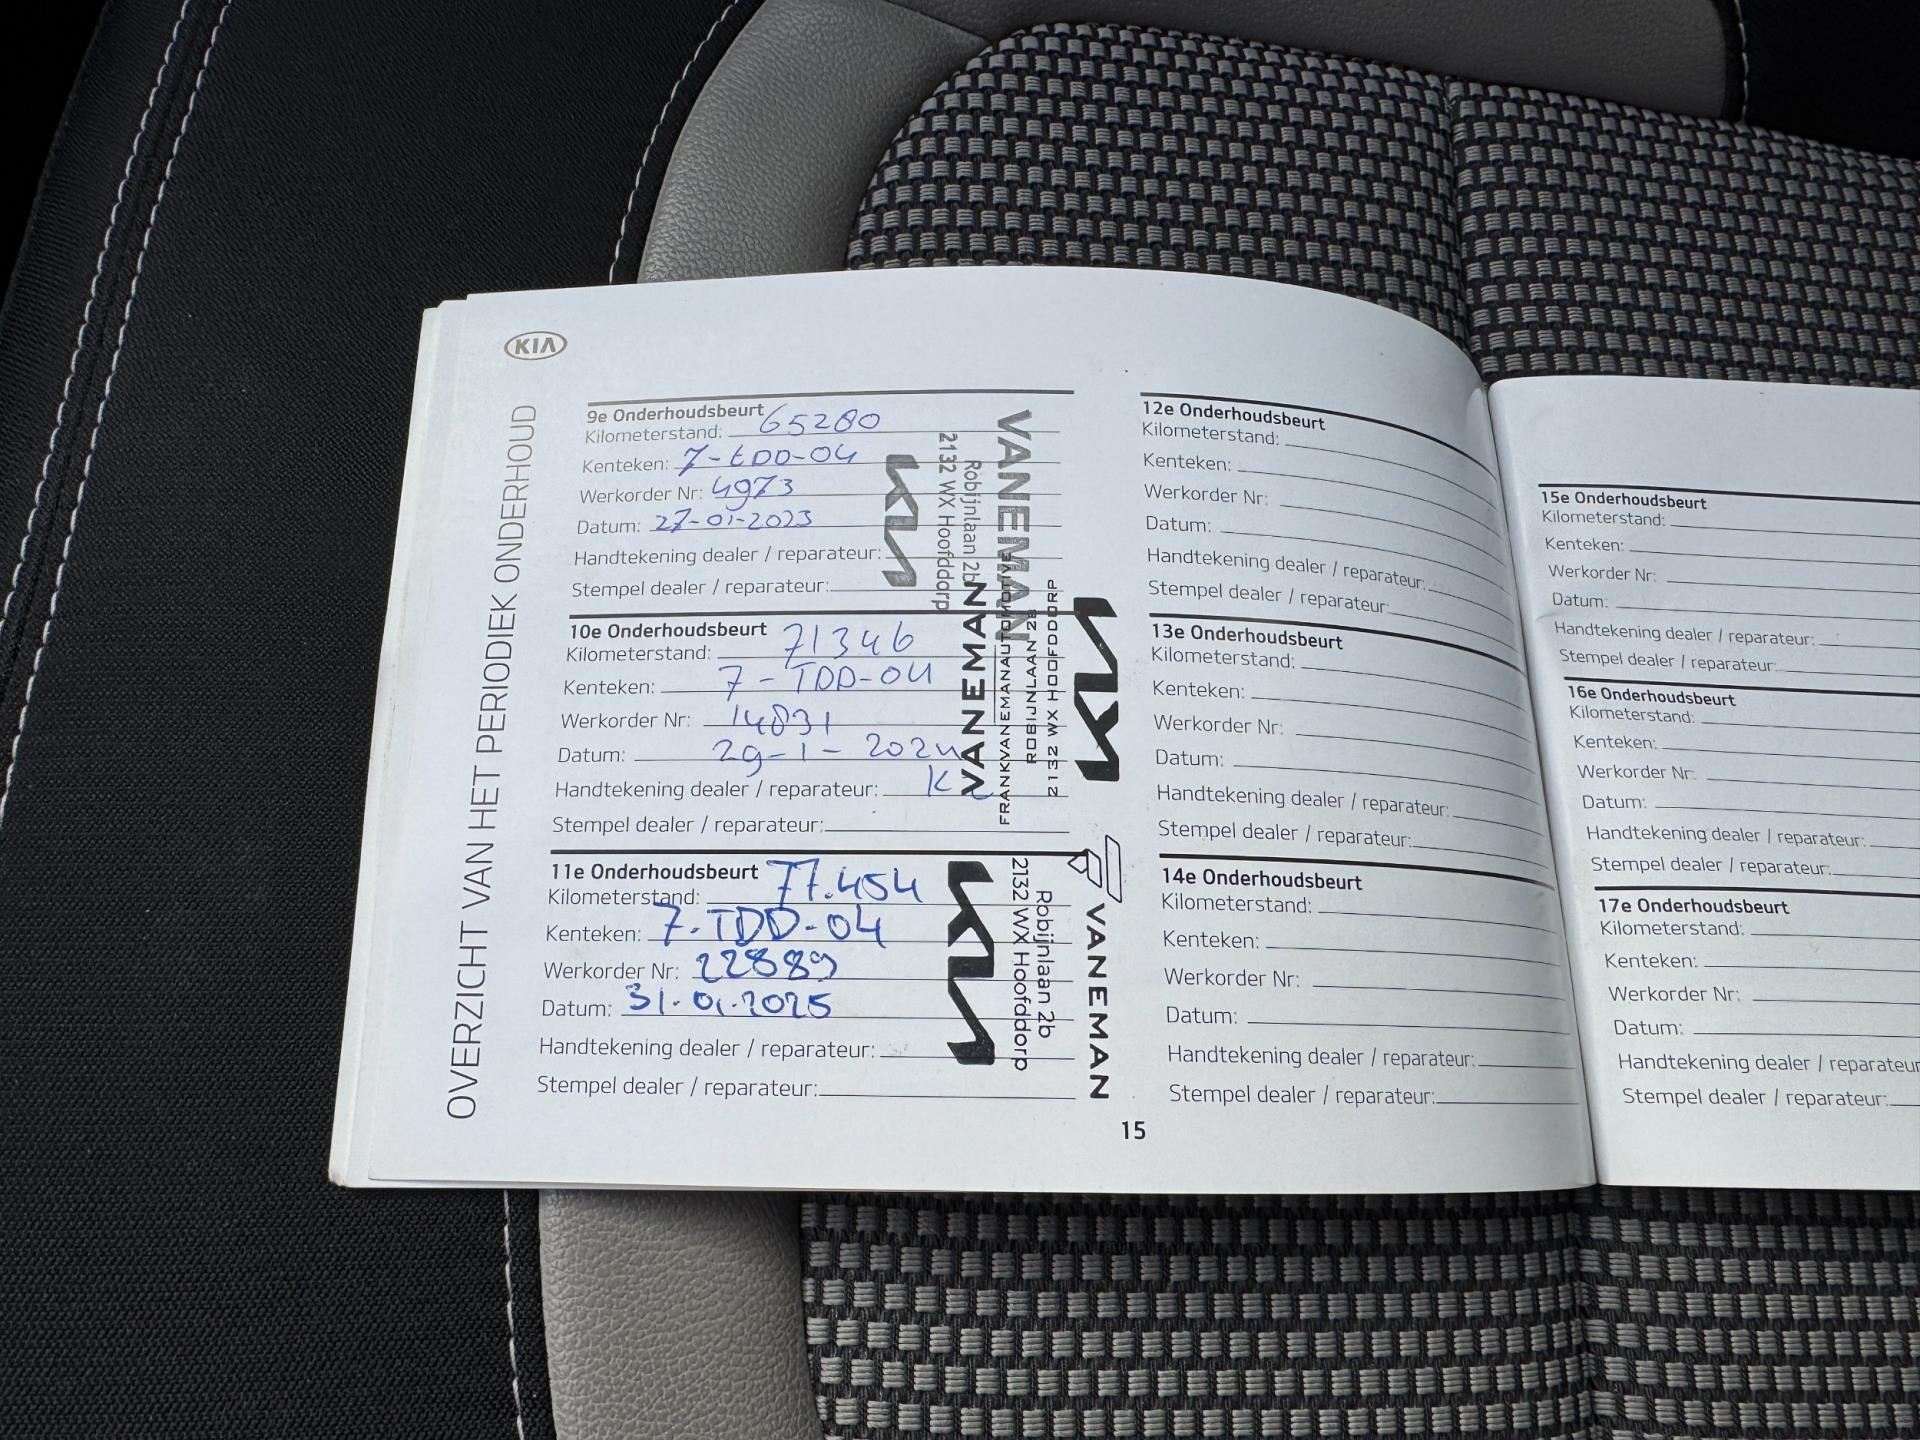 KIA
OVERZICHT VAN HET PERIODIEK ONDERHOUD
9e Onderhoudsbeurt
Kilometerstand: 65280
Kenteken: 7-tDD-04
Werkorder Nr: 4973
Datum: 27-01-2023
Handtekening dealer / reparateur:
Stempel dealer / reparateur:
KIA
2132 WX Hoofddorp
Robijnlaan 2b
VANEMAN
10e Onderhoudsbeurt
Kilometerstand: 71346
Kenteken: 7-TDD-04
Werkorder Nr: 14831
Datum: 29-1-2024
Handtekening dealer / reparateur:
Stempel dealer / reparateur:
VANEMAN
FRANKVANEMANAUTOMOTIVE
ROBIJNLAAN 2B
2132 WX HOOFDDORP
KIA
11e Onderhoudsbeurt
Kilometerstand: 77.454
Kenteken: 7-TDD-04
Werkorder Nr: 22889
Datum: 31-01-2025
Handtekening dealer / reparateur:
Stempel dealer / reparateur:
KIA
2132 WX Hoofddorp
Robijnlaan 2b
VANEMAN
15
12e Onderhoudsbeurt
Kilometerstand:
Kenteken:
Werkorder Nr:
Datum:
Handtekening dealer / reparateur:
Stempel dealer / reparateur:
13e Onderhoudsbeurt
Kilometerstand:
Kenteken:
Werkorder Nr:
Datum:
Handtekening dealer / reparateur:
Stempel dealer / reparateur:
14e Onderhoudsbeurt
Kilometerstand:
Kenteken:
Werkorder Nr:
Datum:
Handtekening dealer / reparateur:
Stempel dealer / reparateur:
15e Onderhoudsbeurt
Kilometerstand:
Kenteken:
Werkorder Nr:
Datum:
Handtekening dealer / reparateur:
Stempel dealer / reparateur:
16e Onderhoudsbeurt
Kilometerstand:
Kenteken:
Werkorder Nr:
Datum:
Handtekening dealer / reparateur:
Stempel dealer / reparateur:
17e Onderhoudsbeurt
Kilometerstand:
Kenteken:
Werkorder Nr:
Datum:
Handtekening dealer / reparateur
Stempel dealer / reparateur: